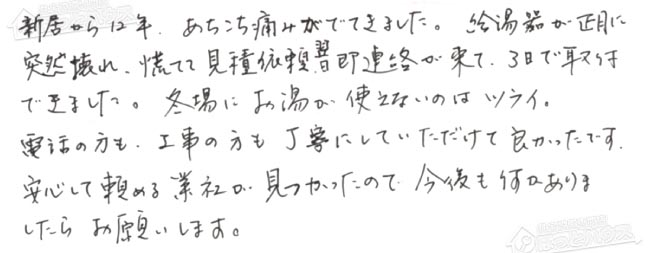 新居から12年、あちこち痛みがでてきました。給湯器が正月に
突然壊れ、慌てて見積依頼翌即連絡が来て、3日で取付
できました。冬場にお湯が使えないのはツライ。
電話の方も、工事の方も丁寧にしていただけて良かったです。
安心して頼める業社が見つかったので今後も何かありま
したらお願いします。